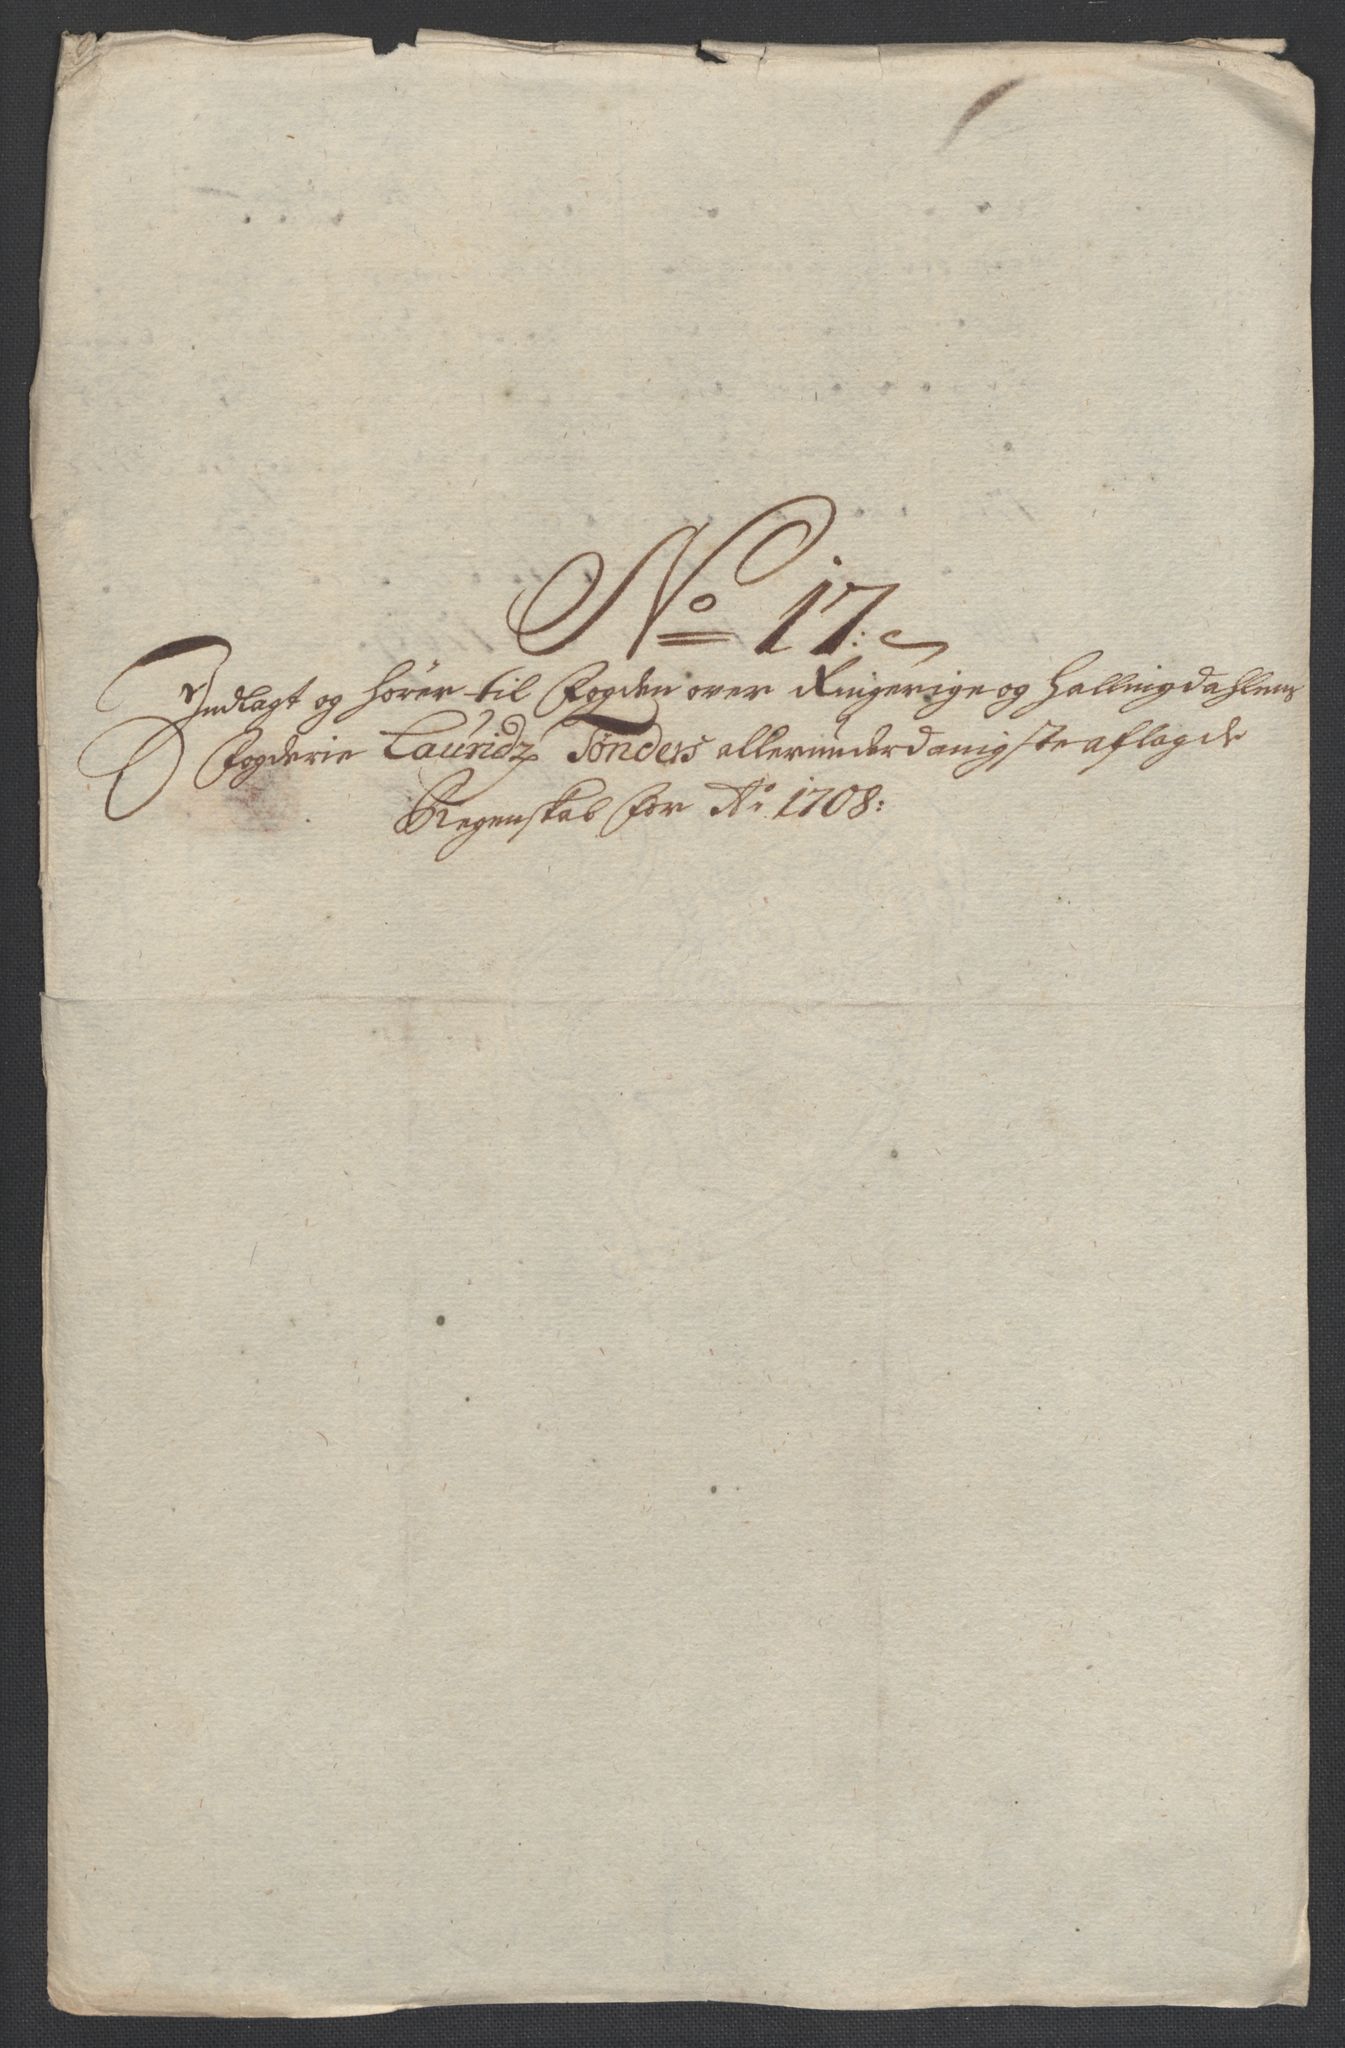 No 17:
Indlagt og hörer til Fogden over Ringerige og Hallingdahlens
Fogderie Lauridz Tønders allerunderdanigste aflagde
Regenskab for Ao 1708: